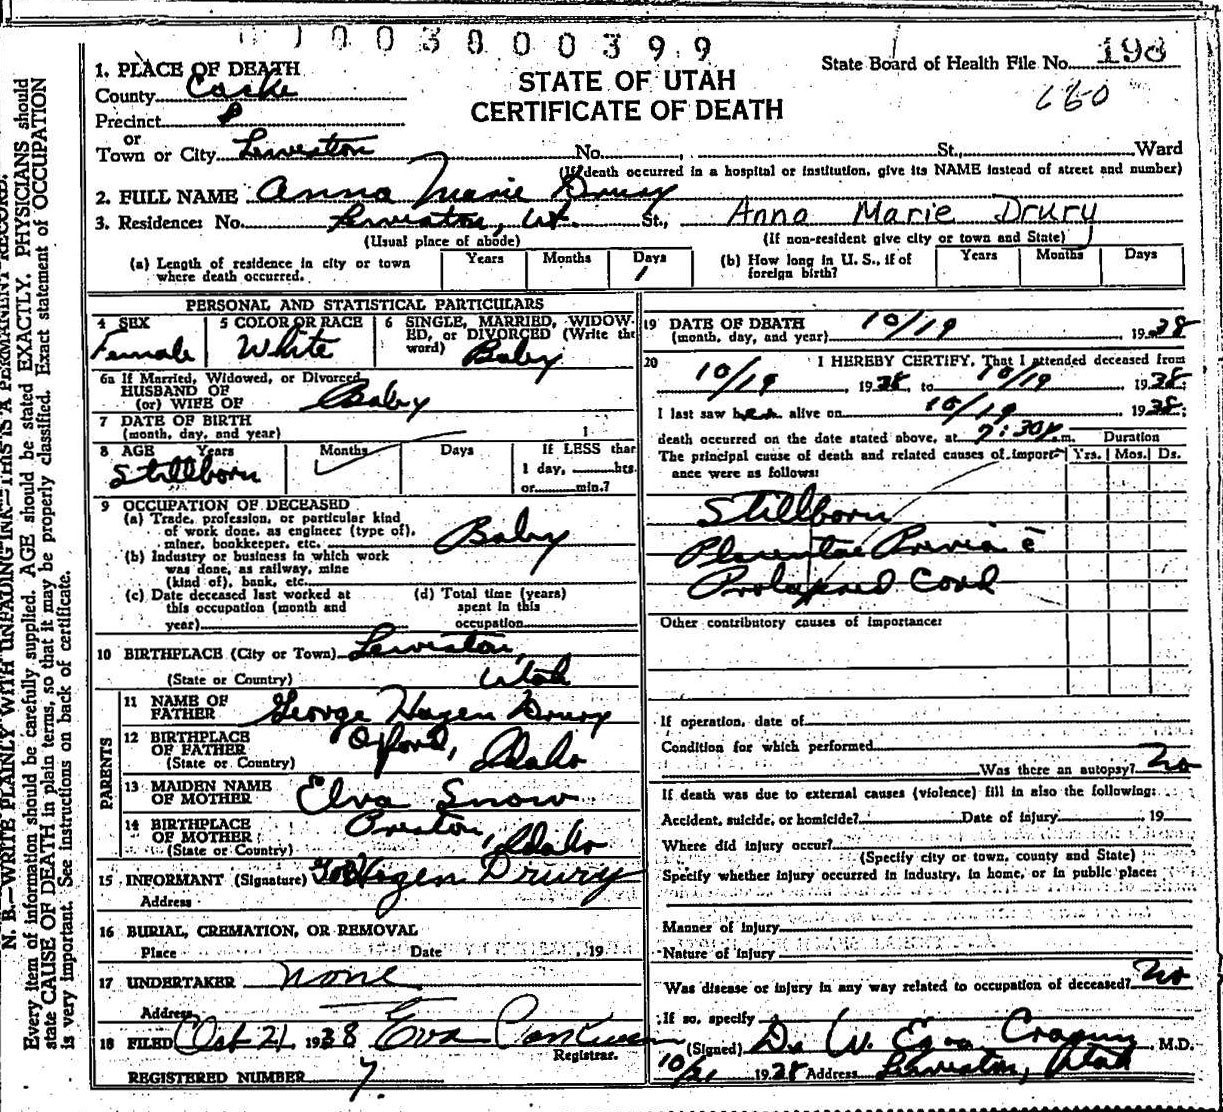 0 1 0 0 3 0 0 0 3 9 9
State Board of Health File No. 198
660
STATE OF UTAH
CERTIFICATE OF DEATH
1. PLACE OF DEATH
County Cache
Precinct
or
Town or City Lewiston No. St., Ward
(If death occurred in a hospital or institution, give its NAME instead of street and number)
2. FULL NAME Anna Marie Drury
3. Residence: No. Lewiston, Ut. St., Anna Marie Drury
(Usual place of abode) (If non-resident give city or town and State)
(a) Length of residence in city or town where death occurred. Years Months Days 1
(b) How long in U. S., if of foreign birth? Years Months Days
PERSONAL AND STATISTICAL PARTICULARS
4 SEX Female
5 COLOR OR RACE White
6 SINGLE, MARRIED, WIDOWED, OR DIVORCED (Write the word) Baby
6a If Married, Widowed, or Divorced
HUSBAND OF
(or) WIFE OF Baby
7 DATE OF BIRTH
(month, day, and year)
8 AGE Years Months Days If LESS than
Stillborn 1 day, hrs.
or min.?
9 OCCUPATION OF DECEASED
(a) Trade, profession, or particular kind
of work done, as engineer (type of),
miner, bookkeeper, etc. Baby
(b) Industry or business in which work
was done, as railway, mine
(kind of), bank, etc.
(c) Date deceased last worked at
this occupation (month and
year)
(d) Total time (years)
spent in this
occupation
10 BIRTHPLACE (City or Town) Lewiston,
(State or Country) Utah
PARENTS
11 NAME OF
FATHER George Hazen Drury
12 BIRTHPLACE
OF FATHER Oxford, Idaho
(State or Country)
13 MAIDEN NAME
OF MOTHER Elva Snow
14 BIRTHPLACE
OF MOTHER Preston, Idaho
(State or Country)
15 INFORMANT (Signature) Hazen Drury
Address
16 BURIAL, CREMATION, OR REMOVAL
Place Date , 19
17 UNDERTAKER none
Address
18 FILED Oct 21, 1938 Eva
Registrar.
REGISTERED NUMBER 7.
19 DATE OF DEATH
(month, day, and year) 10/19 1938
20 I HEREBY CERTIFY, That I attended deceased from
10/19 1938 to 10/19 1938;
I last saw her alive on 10/19 1938;
death occurred on the date stated above, at 7:30 p.m.
Duration
The principal cause of death and related causes of importance were as follows: Yrs. Mos. Ds.
Stillborn
Placentae Previa c̄
Prolapsed Cord
Other contributory causes of importance:
If operation, date of
Condition for which performed
Was there an autopsy? no
If death was due to external causes (violence) fill in also the following:
Accident, suicide, or homicide? Date of injury , 19
Where did injury occur?
(Specify city or town, county and State)
Specify whether injury occurred in industry, in home, or in public place:
Manner of injury
Nature of injury
Was disease or injury in any way related to occupation of deceased? no
If so, specify
(Signed) Dr W. , M.D.
10/21 1938 Address Lewiston, Utah
N. B.—WRITE PLAINLY WITH UNFADING INK—THIS IS A PERMANENT RECORD.
Every item of information should be carefully supplied. AGE should be stated EXACTLY. PHYSICIANS should
state CAUSE OF DEATH in plain terms, so that it may be properly classified. Exact statement of OCCUPATION
is very important. See instructions on back of certificate.